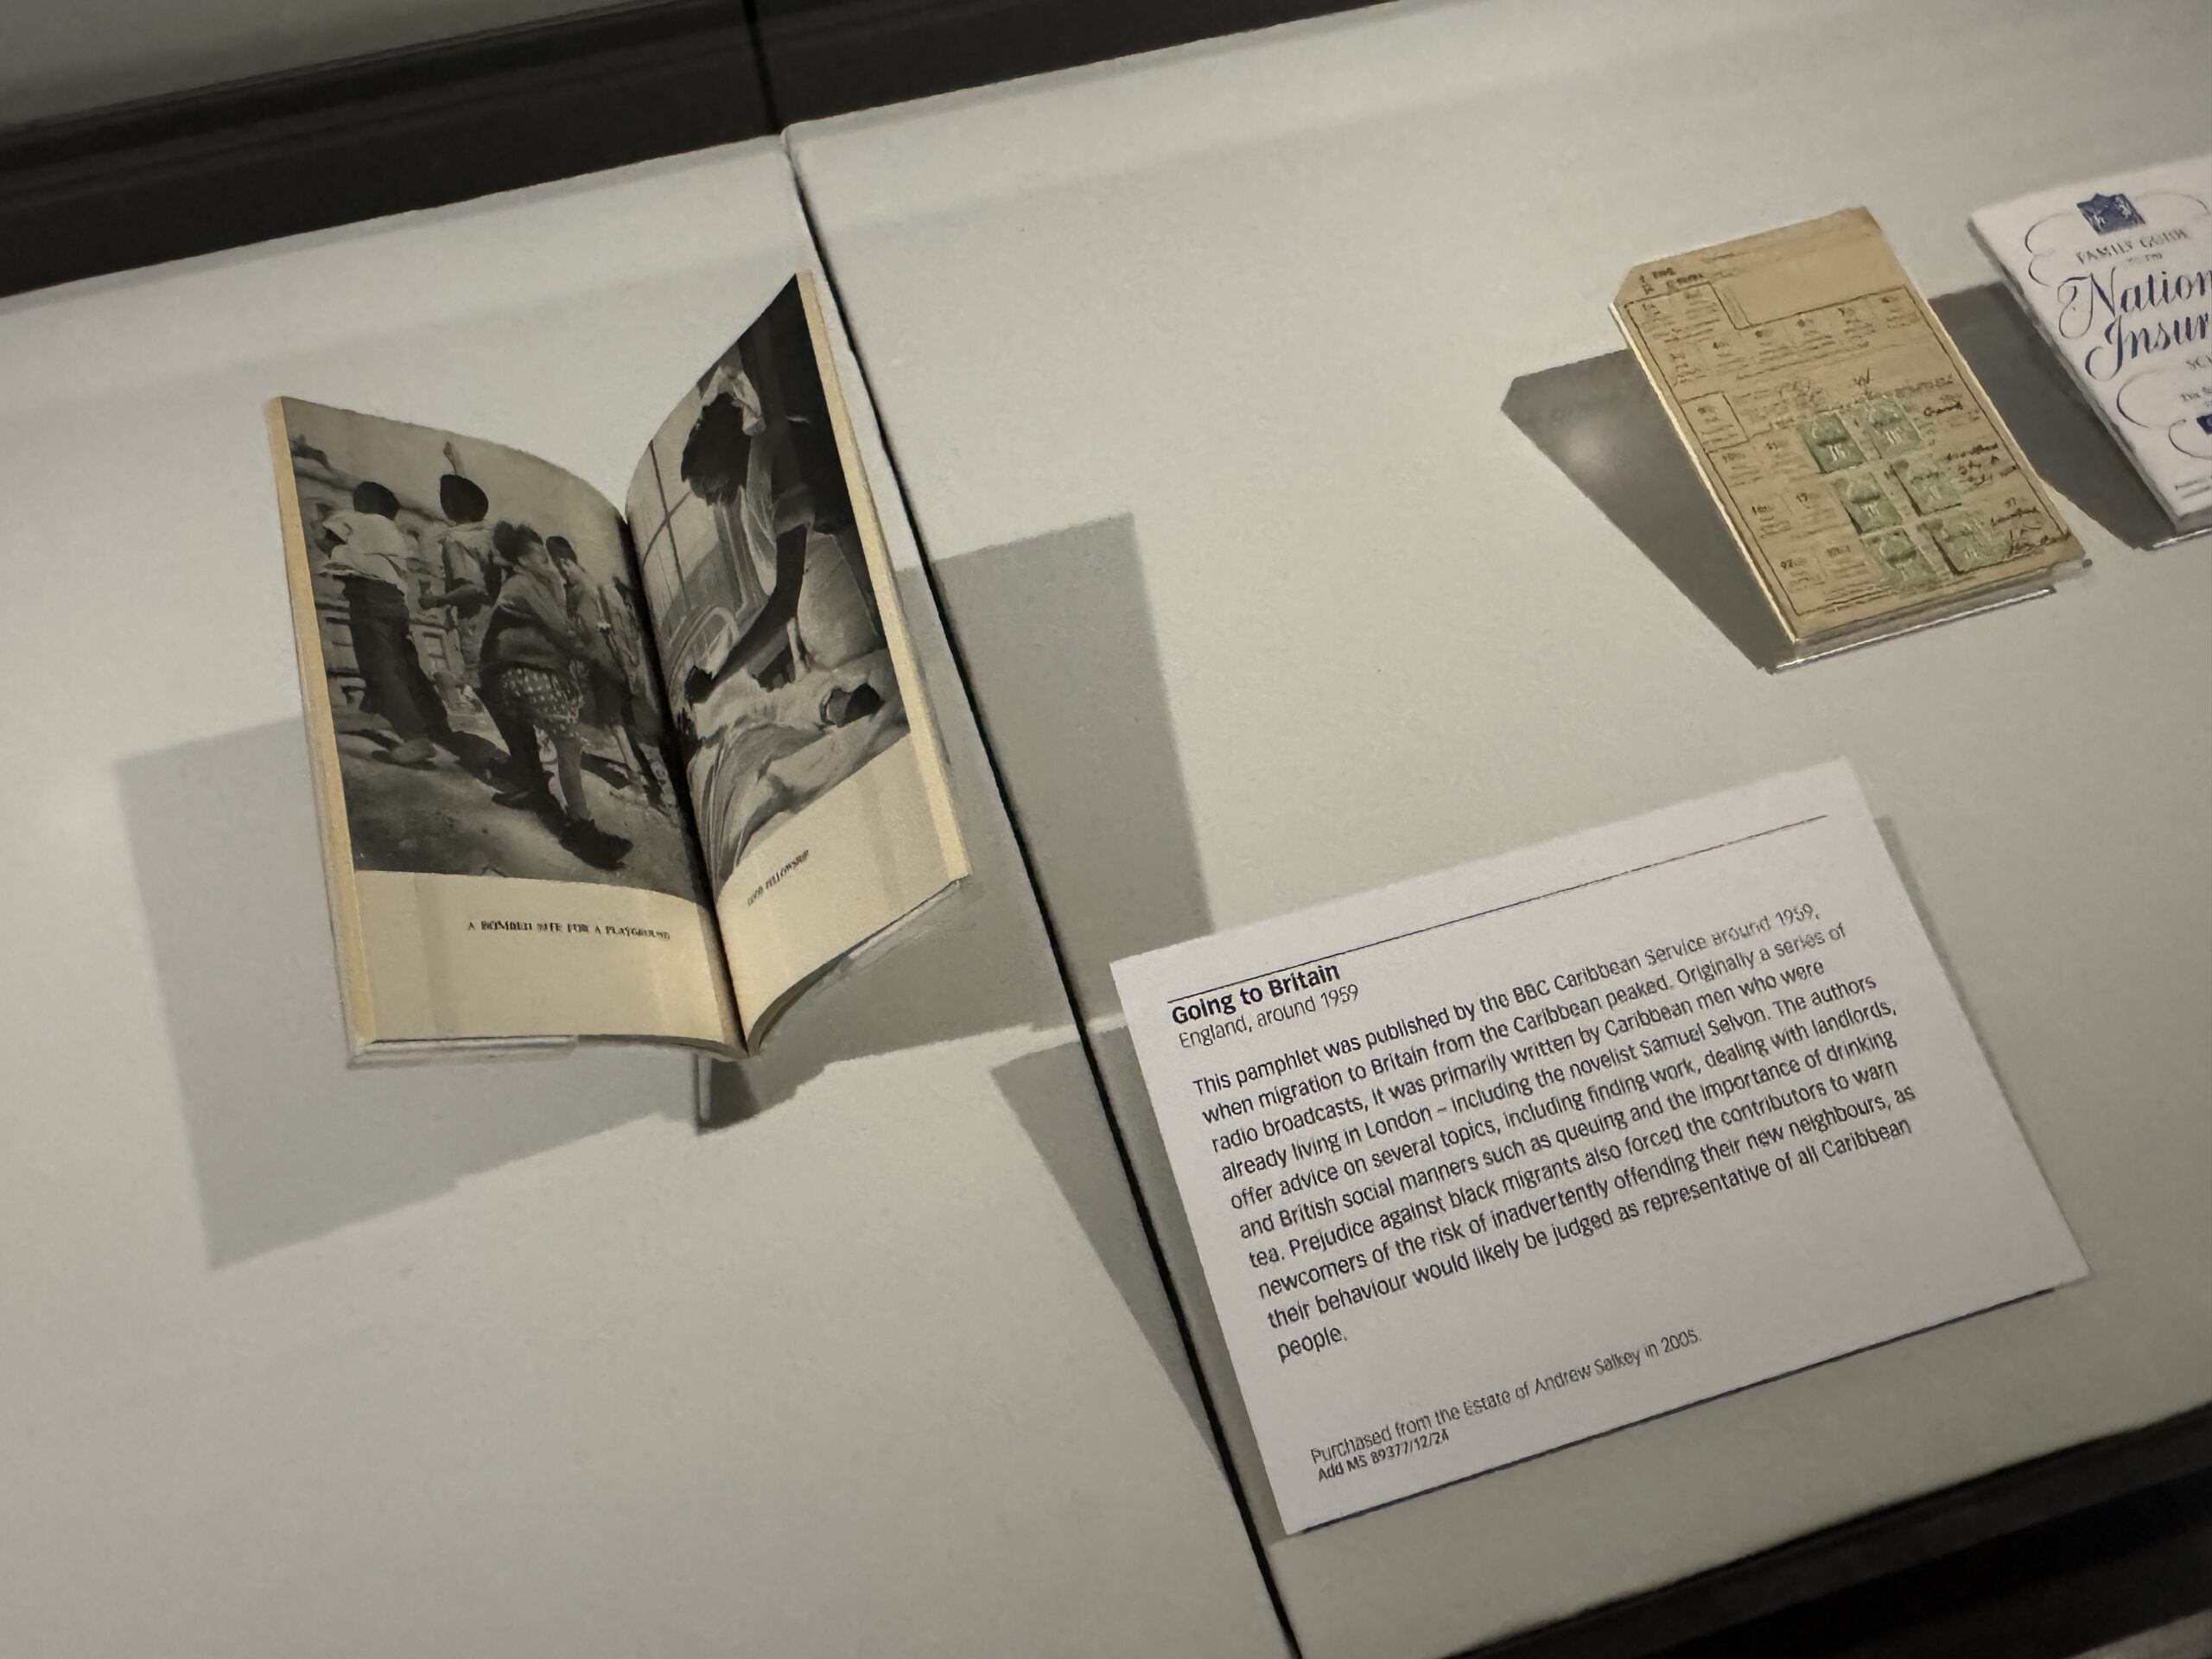 A BOMBED SITE FOR A PLAYGROUND
GOOD FELLOWSHIP
FAMILY GUIDE
Nation
Insur
Going to Britain
England, around 1959
This pamphlet was published by the BBC Caribbean Service around 1959,
when migration to Britain from the Caribbean peaked. Originally a series of
radio broadcasts, it was primarily written by Caribbean men who were
already living in London – including the novelist Samuel Selvon. The authors
offer advice on several topics, including finding work, dealing with landlords,
and British social manners such as queuing and the importance of drinking
tea. Prejudice against black migrants also forced the contributors to warn
newcomers of the risk of inadvertently offending their new neighbours, as
their behaviour would likely be judged as representative of all Caribbean
people.
Purchased from the Estate of Andrew Salkey in 2005.
Add MS 89377/12/24